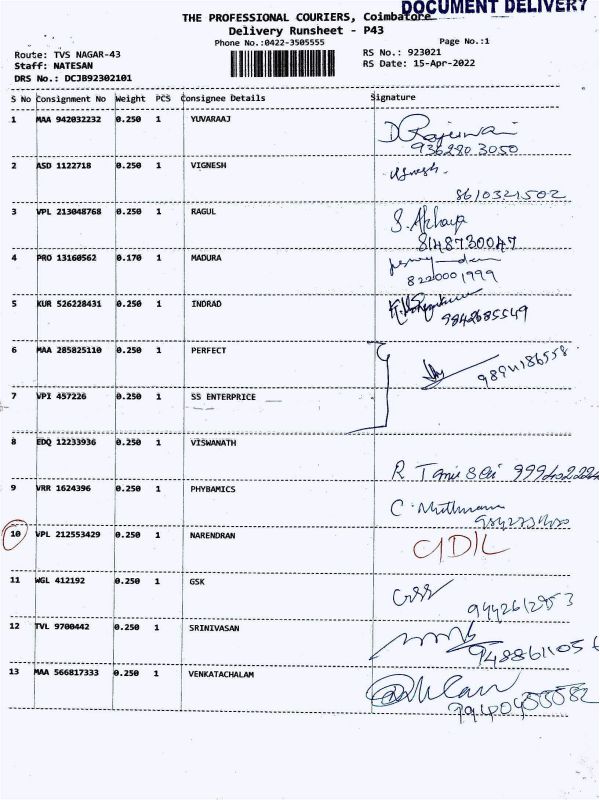 DOCUMENT DELIVERY
THE PROFESSIONAL COURIERS, Coimbatore
Delivery Runsheet - P43
Phone No.:0422-3505555 Page No.:1
Route: TVS NAGAR-43 RS No.: 923021
Staff: NATESAN RS Date: 15-Apr-2022
DRS No.: DCJB92302101
S No Consignment No Weight PCS Consignee Details Signature
1 MAA 942032232 0.250 1 YUVARAAJ
9362803050
2 ASD 1122718 0.250 1 VIGNESH
8610321502
3 VPL 213048768 0.250 1 RAGUL S. Akhaya
8148730047
4 PRO 13160562 0.170 1 MADURA
8220001999
5 KUR 526228431 0.250 1 INDRAD
9842685549
6 MAA 285825110 0.250 1 PERFECT
7 VPI 457226 0.250 1 SS ENTERPRICE
8 EDQ 12233936 0.250 1 VISWANATH
R
9 VRR 1624396 0.250 1 PHYBAMICS
10 VPL 212553429 0.250 1 NARENDRAN
11 WGL 412192 0.250 1 GSK
12 TVL 9700442 0.250 1 SRINIVASAN
13 MAA 566817333 0.250 1 VENKATACHALAM